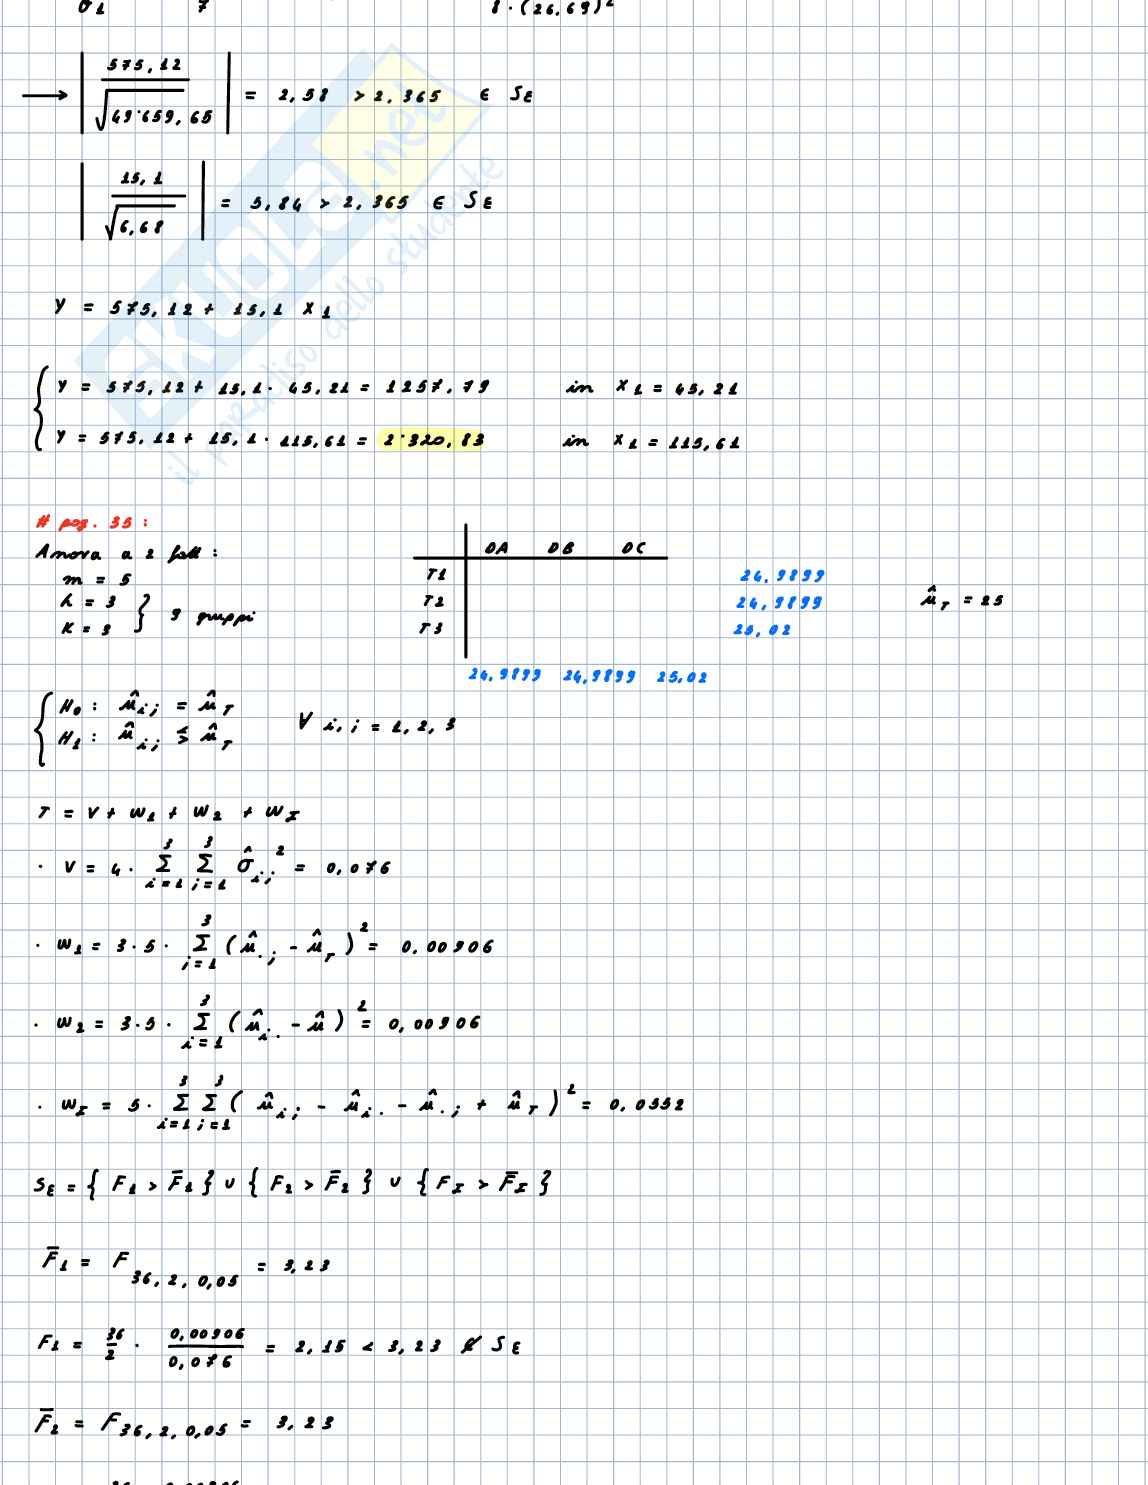 σ1 7 8·(26,69)²
→ | 575,12 / √49·659,65 | = 2,58 > 2,365 ∈ SE
| 15,1 / √6,68 | = 5,84 > 2,365 ∈ SE
y = 575,12 + 15,1 x1
y = 575,12 + 15,1 · 45,21 = 1257,79 in x1 = 45,21
y = 575,12 + 15,1 · 115,61 = 2·320,83 in x1 = 115,61
# pag. 35 :
Anova a 2 fatt :
m = 5
h = 3
K = 3 } 9 gruppi
DA DB DC
T1 24,9899
T2 24,9899
T3 25,02
μ̂T = 25
24,9899 24,9899 25,02
H0 : μ̂ij = μ̂T
H1 : μ̂ij ≶ μ̂T
∀ i,j = 1,2,3
T = V + W1 + W2 + WI
· V = 4 · Σ(i=1..3) Σ(j=1..3) σ̂ij² = 0,076
· W1 = 3·5 · Σ(j=1..3) (μ̂.j − μ̂T)² = 0,00906
· W2 = 3·5 · Σ(i=1..3) (μ̂i. − μ̂)² = 0,00906
· WI = 5 · Σ(i=1..3) Σ(j=1..3) (μ̂ij − μ̂i. − μ̂.j + μ̂T)² = 0,0552
SE = { F1 > F̄1 } ∪ { F2 > F̄2 } ∪ { FI > F̄I }
F̄1 = F36,2,0,05 = 3,23
F1 = 36/2 · 0,00906/0,076 = 2,15 < 3,23 ∉ SE
F̄2 = F36,2,0,05 = 3,23
skuola.net
il paradiso dello studente